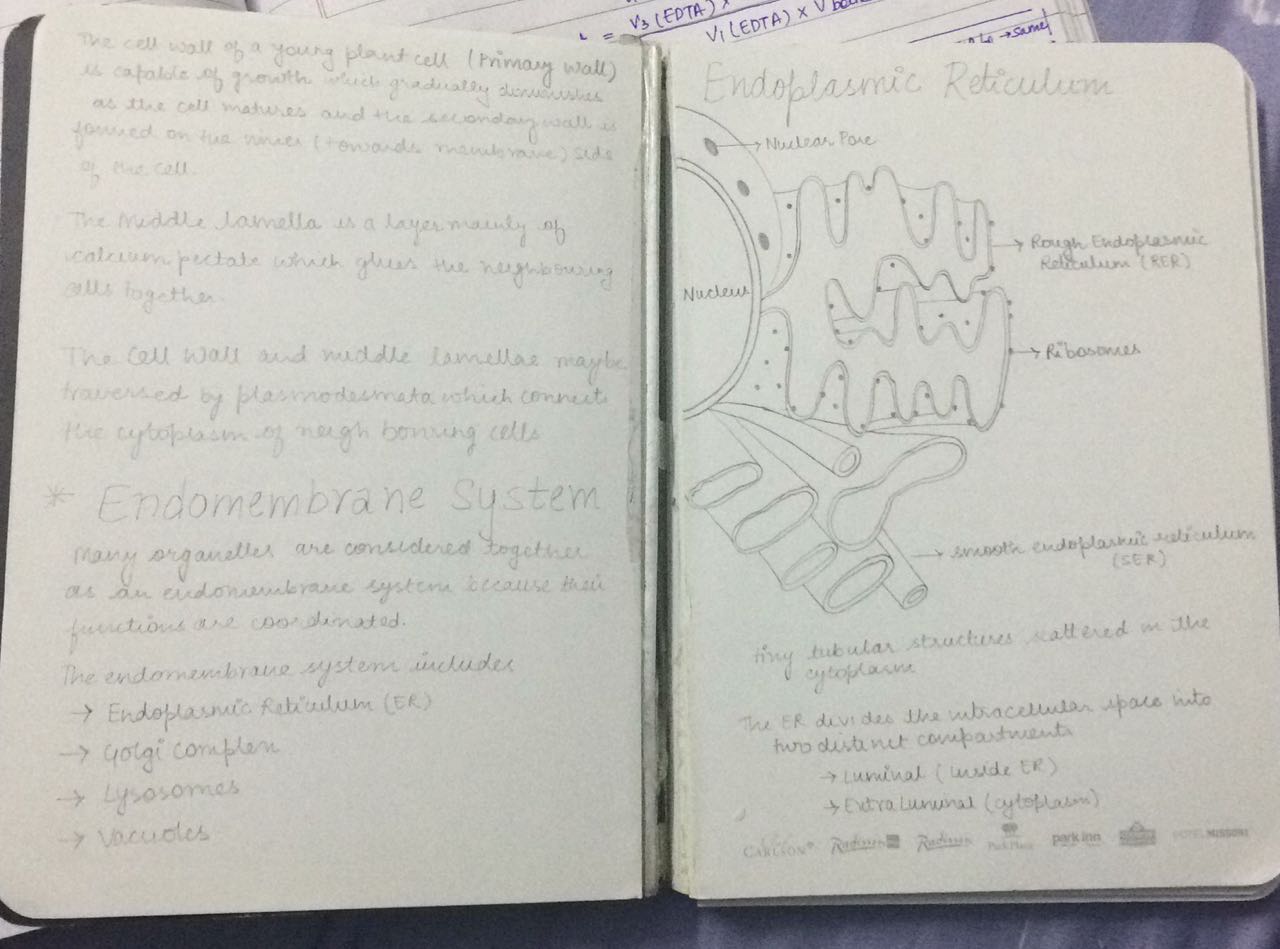 V3 (EDTA) ×
V1 (EDTA) ×
→ same
The cell wall of a young plant cell (Primary Wall)
is capable of growth which gradually diminishes
as the cell matures and the secondary wall is
formed on the inner (towards membrane) side
of the cell.
The Middle lamella is a layer mainly of
calcium pectate which glues the neighbouring
cells together.
The Cell Wall and middle lamellae maybe
traversed by plasmodesmata which connects
the cytoplasm of neighbouring cells
* Endomembrane System
Many organelles are considered together
as an endomembrane system because their
functions are coordinated.
The endomembrane system includes
→ Endoplasmic Reticulum (ER)
→ Golgi Complex
→ Lysosomes
→ Vacuoles
Endoplasmic Reticulum
→ Nuclear Pore
Nucleus
→ Rough Endoplasmic
Reticulum (RER)
→ Ribosomes
→ smooth endoplasmic reticulum
(SER)
tiny tubular structures scattered in the
cytoplasm
The ER divides the intracellular space into
two distinct compartments
→ Luminal (inside ER)
→ Extra Luminal (cytoplasm)
CARLSON Radisson Radisson Park Plaza park inn HOTEL MISSONI